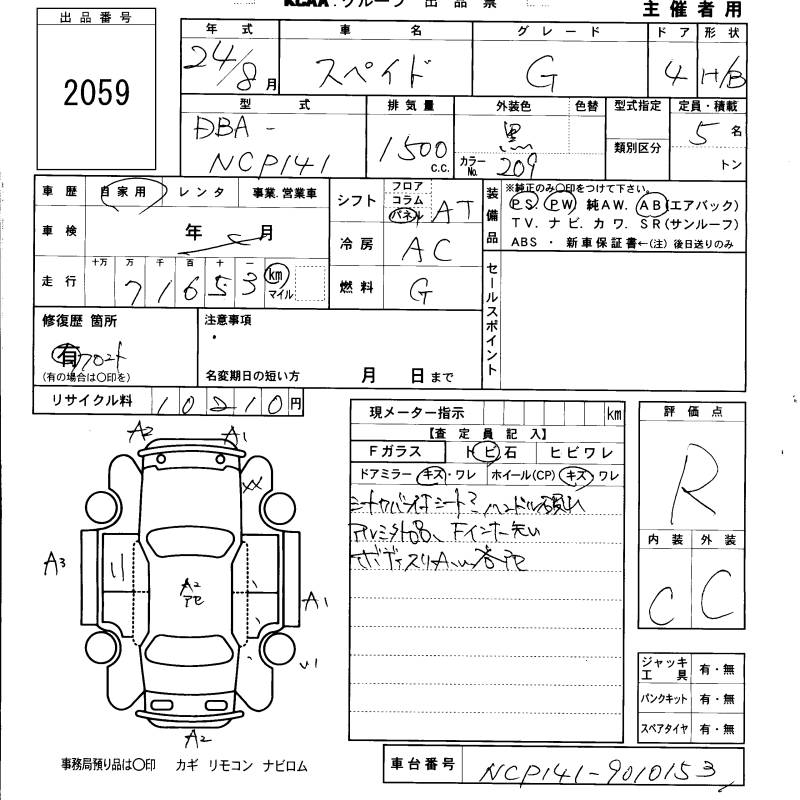 KCAA．グループ 出品票
主催者用
出品番号
2059
年式 車名 グレード ドア 形状
24/8月 スペイド G 4 H/B
型式 排気量 外装色 色替 型式指定 定員・積載
DBA-
NCP141
1500 c.c.
黒
カラーNo. 209
類別区分
5名
トン
車歴 自家用 レンタ 事業.営業車
シフト フロア コラム パネル AT
装備品
※純正のみ〇印をつけて下さい。
PS. PW 純AW. AB(エアバック)
TV. ナビ. カワ. SR(サンルーフ)
ABS ・ 新車保証書←(注) 後日送りのみ
車検 年 月
冷房 AC
走行 十万 万 千 百 十 一
71653 km マイル
燃料 G
セールスポイント
修復歴 箇所
有 フロント
(有の場合は〇印を)
注意事項
名変期日の短い方 月 日まで
リサイクル料 10210円
現メーター指示 km
評価点
R
【査定員記入】
Fガラス トビ石 ヒビワレ
ドアミラー キズ・ワレ ホイール(CP) キズ ワレ
内装 外装
C C
A2 A1
XX
A3
A2
アセ
A1
A2
ジャッキ工具 有・無
パンクキット 有・無
スペアタイヤ 有・無
事務局預り品は〇印 カギ リモコン ナビロム
車台番号 NCP141-9010153